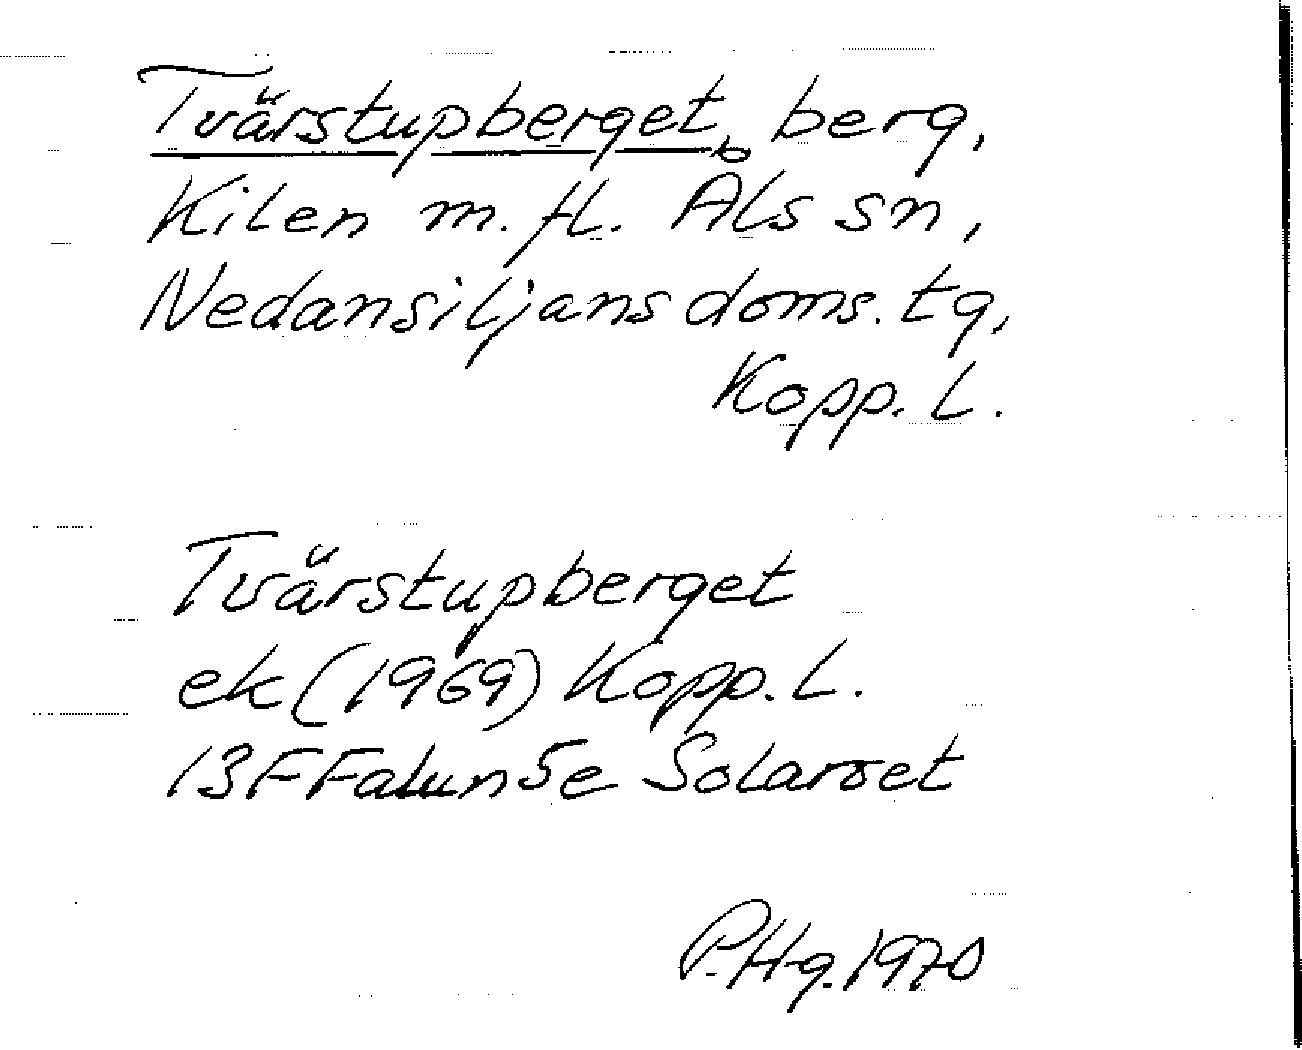 Tvärstupberget, berg,
Kilen m. fl. Åls sn,
Nedansiljans doms. tg,
Kopp. L.
Tvärstupberget
ek (1969) Kopp. L.
13F Falun 5e Solarvet
P. Hg. 1970